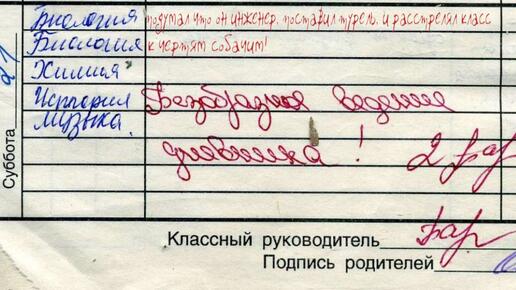 Биология подумал что он инженер. поставил турель. и расстрелял класс
Биология к чертям собачим!
Химия
История Безобразное ведение
Музыка.
дневника! 2 Бар
Суббота 21
Классный руководитель Бар
Подпись родителей